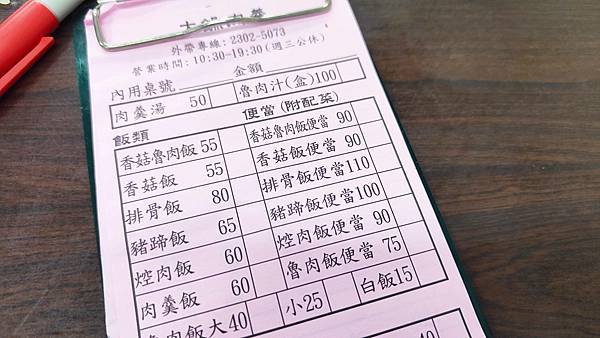 外帶專線:2302-5073
營業時間:10:30-19:30(週三公休)
內用桌號 金額
肉羹湯 50 魯肉汁(盒)100
飯類 便當(附配菜)
香菇魯肉飯 55 香菇魯肉飯便當 90
香菇飯 55 香菇飯便當 90
排骨飯 80 排骨飯便當110
豬蹄飯 65 豬蹄飯便當100
焢肉飯 60 焢肉飯便當 90
肉羹飯 60 魯肉飯便當 75
肉飯大40 小25 白飯15
40